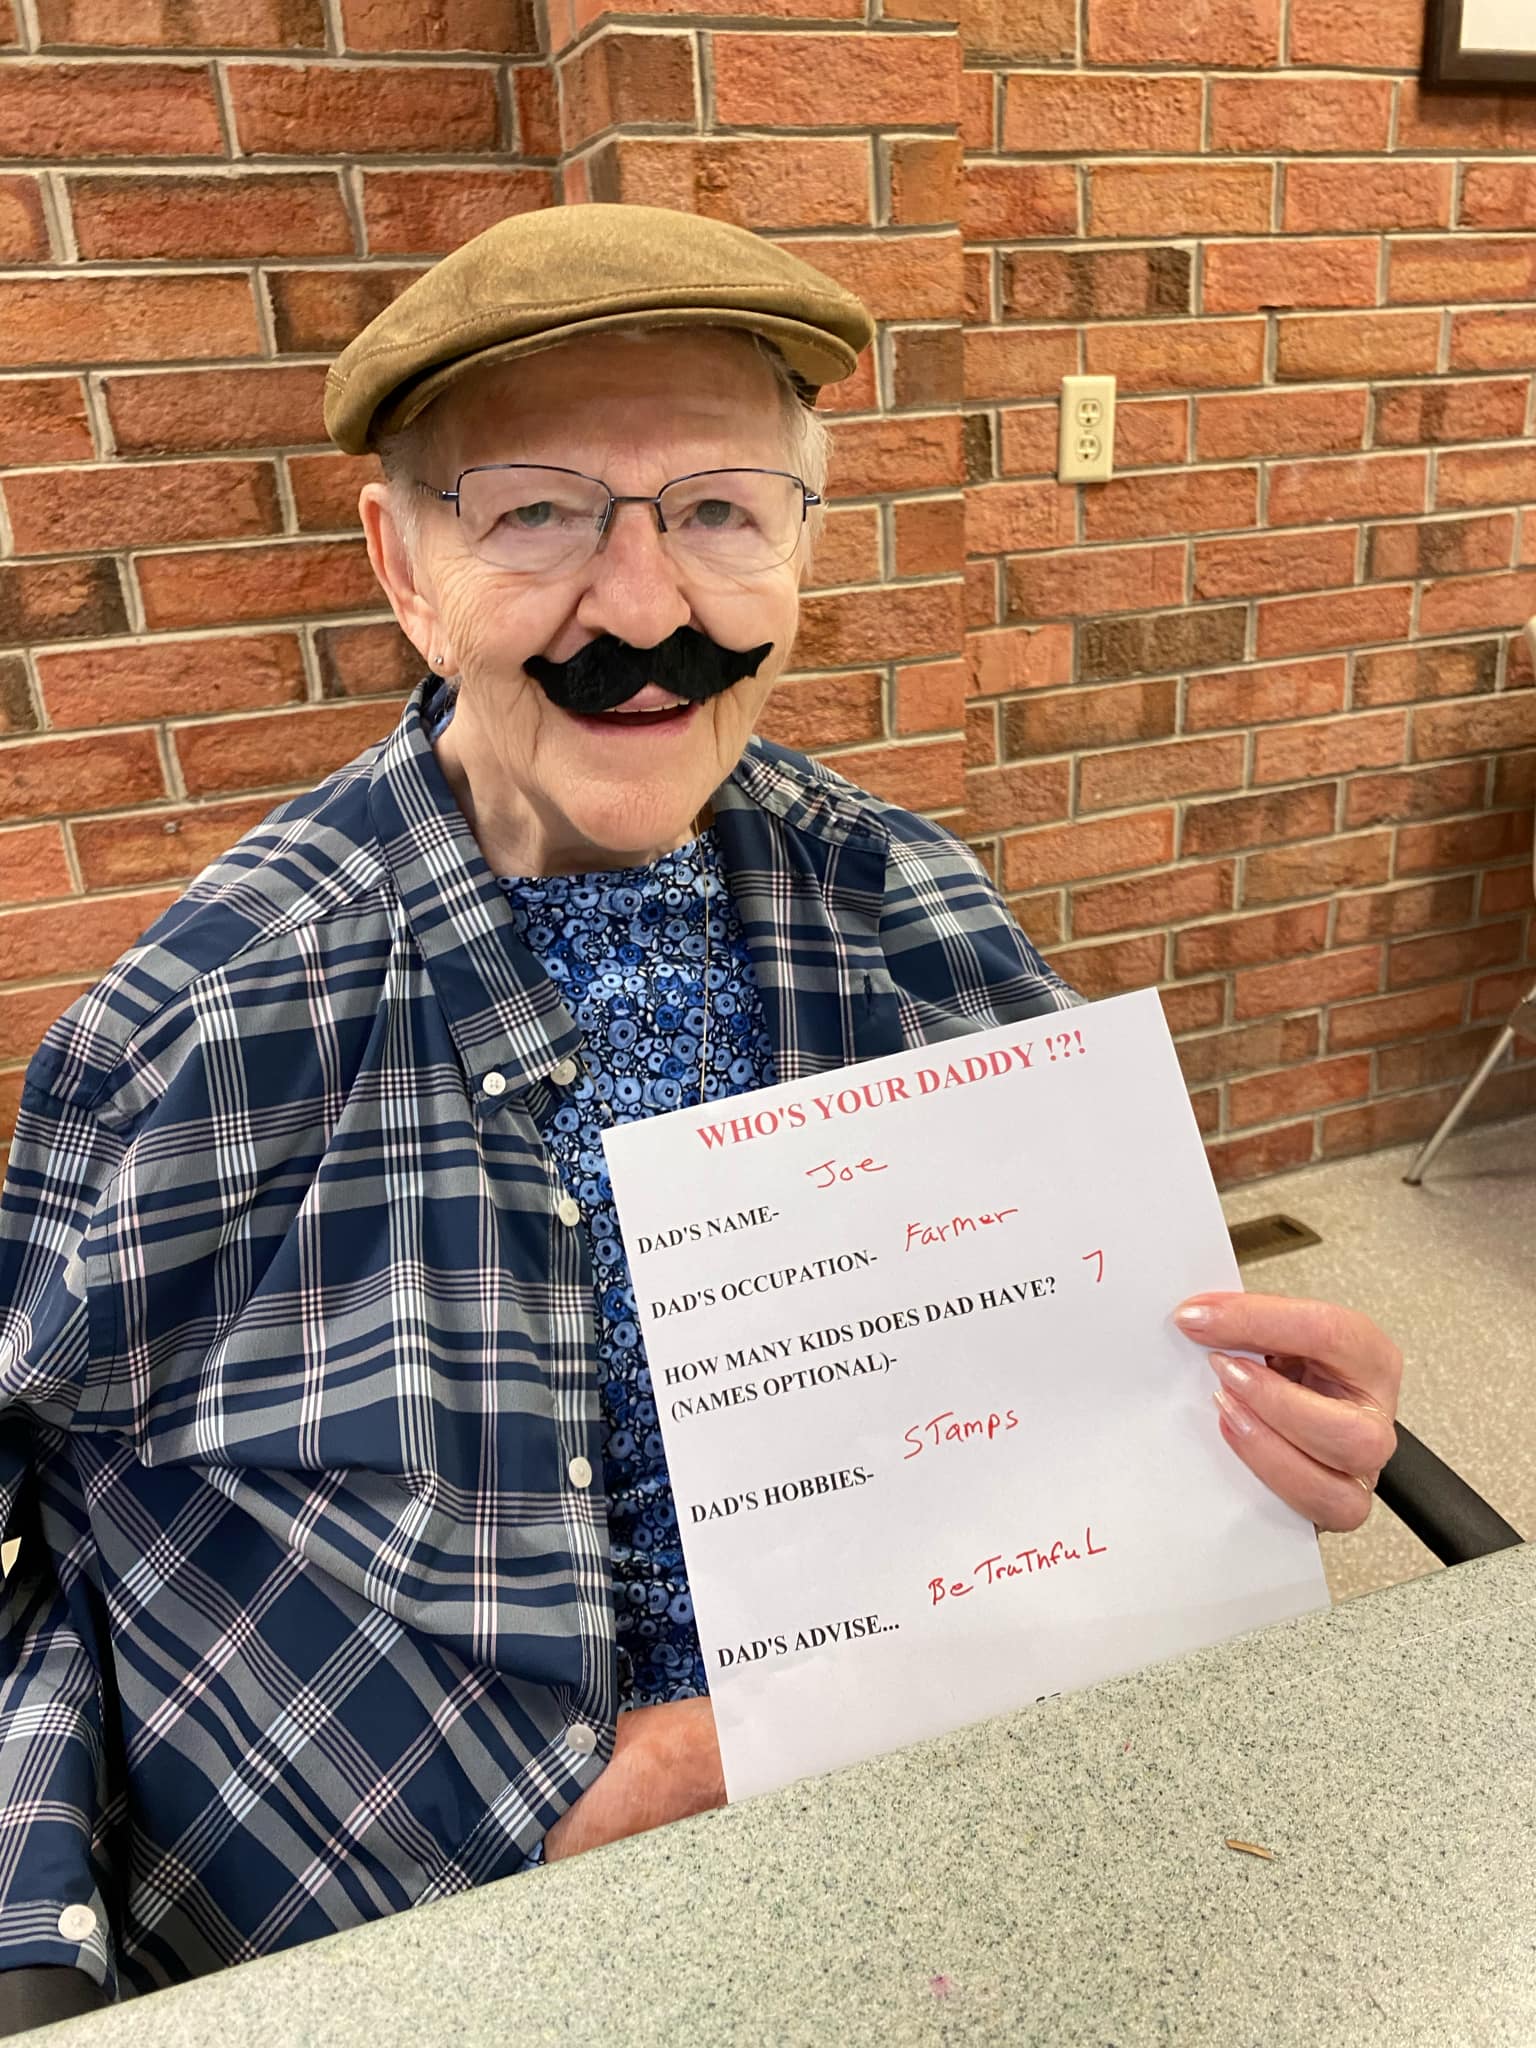 WHO'S YOUR DADDY !?!
DAD'S NAME- Joe
DAD'S OCCUPATION- Farmer
HOW MANY KIDS DOES DAD HAVE? 7
(NAMES OPTIONAL)-
DAD'S HOBBIES- STamps
DAD'S ADVISE... Be TruThfuL